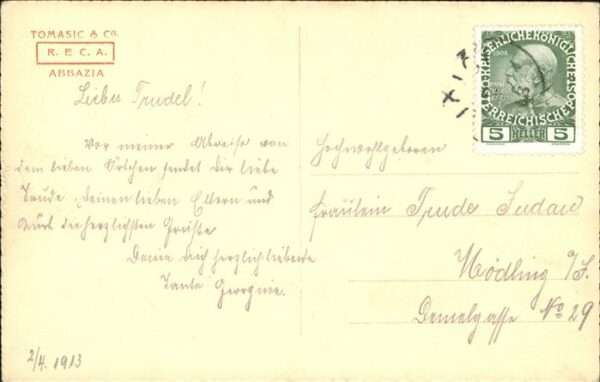 TOMASIC & Co.
R. E. C. A.
ABBAZIA
Liebe Trudel!
Vor meiner Abreise von
dem lieben Örtchen sendet dir liebe
Trude, deinen lieben Eltern und
Kurt die herzlichsten Grüße
Deine dich herzlich liebende
Tante Georgine.
2/4. 1913
KAISERLICHE KÖNIGLICHE
ÖSTERREICHISCHE
5 HELLER 5
Hochwohlgeboren
Fräulein Trude
Mödling
Demelgasse No 29